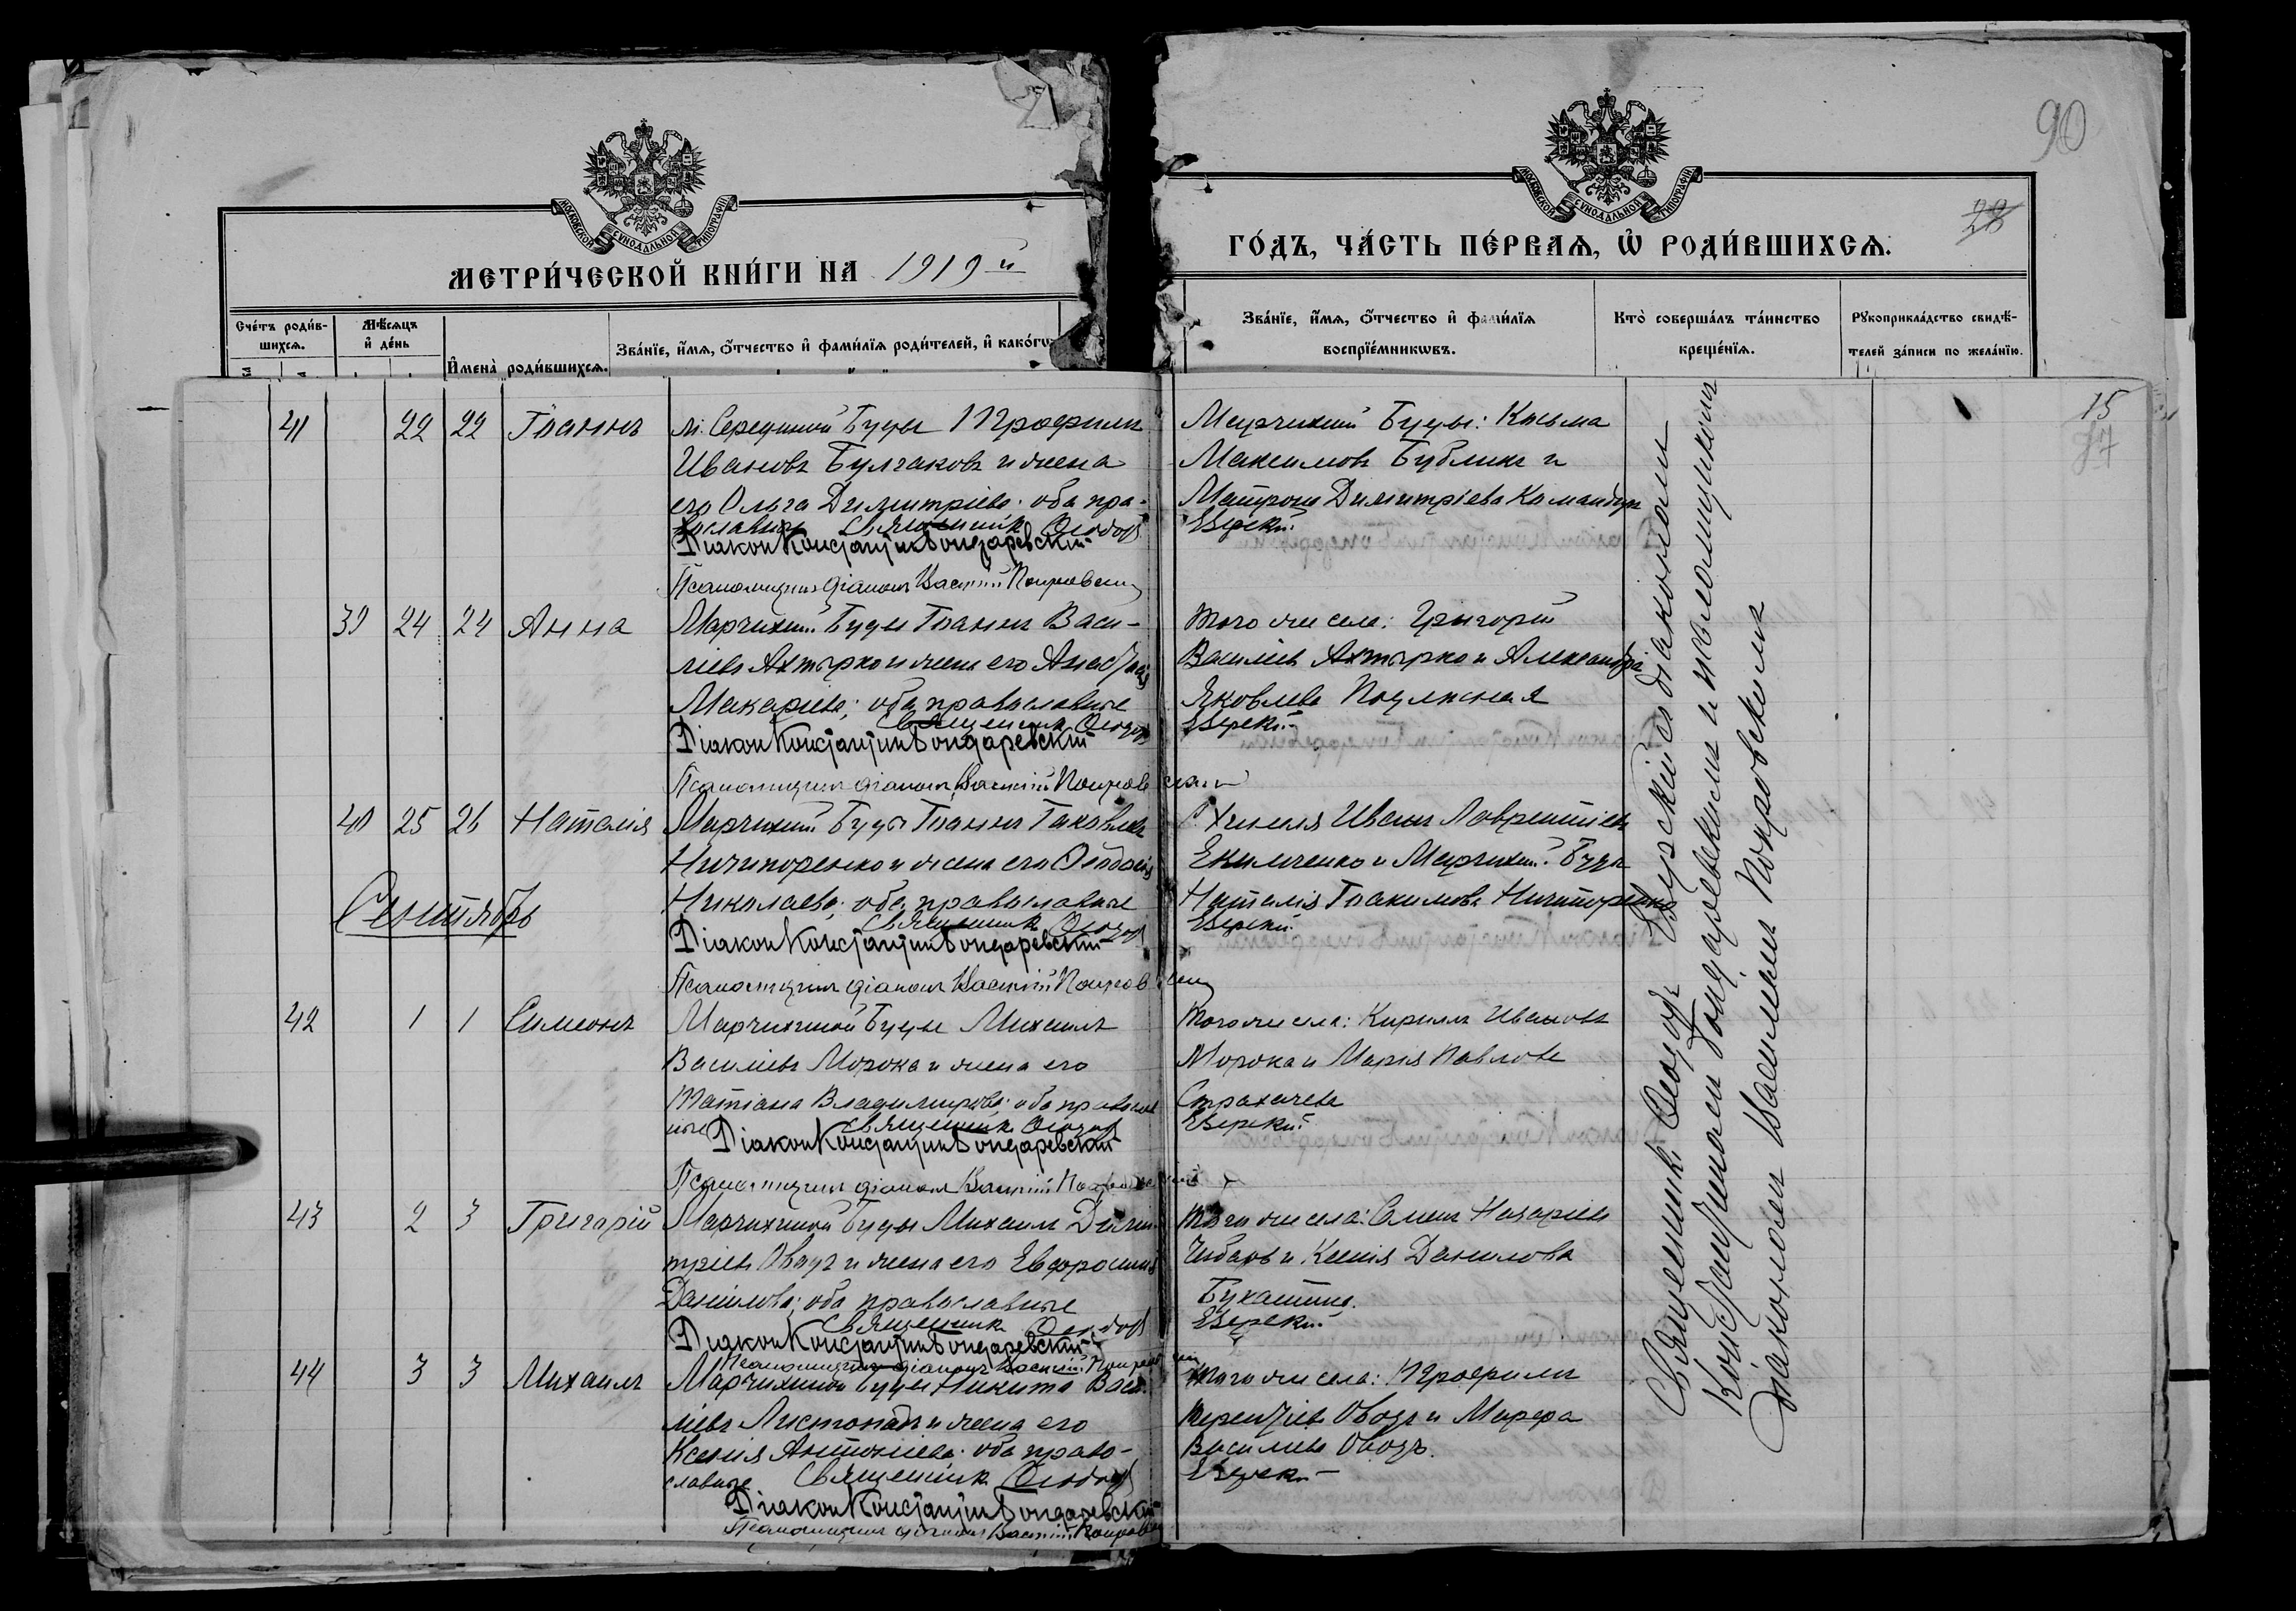 90
28
МОСКОВСКОЙ СѴНОДАЛЬНОЙ ТИПОГРАФІИ
МОСКОВСКОЙ СѴНОДАЛЬНОЙ ТИПОГРАФІИ
МЕТРИ́ЧЕСКОЙ КНИ́ГИ НА 1919й
ГО́ДЪ, ЧА́СТЬ ПЕ́РВАѦ, Ѡ҆ РОДИ́ВШИХСѦ.
Сче́тъ роди́в-
шихсѧ.
Мѣ́сѧцъ
и҆ де́нь
И҆мена̀ роди́вшихсѧ.
Зва́нїе, и҆́мѧ, ѻ҆́тчество и҆ фами́лїѧ роди́телей, и҆ како́гѡ
Зва́нїе, и҆́мѧ, ѻ҆́тчество и҆ фами́лїѧ
воспрїе́мникѡвъ.
Кто̀ соверша́лъ та́инство
креще́нїѧ.
Рꙋкоприкла́дство свидѣ́-
телей за́писи по жела́нїю.
15
87
41 22 22 Іоаннъ
м. Середимой Буды Трофимъ
Ивановъ Булгаковъ и жена
его Ольга Димитріева; оба пра-
вославные Священникъ Ѳеодоръ
Діакон Констаntин Бондаревскій
Псаломщикъ діаконъ Василій Покровскій
Марчихин. Буды: Косьма
Максимовъ Бублик и
Матрона Димитріева Командир
Еверскій
39 24 24 Анна
Марчихин. Буды Іоаннъ Васи-
ліевъ Ахтырко и жена его Анастасія
Макаріева; оба православные
Священникъ Ѳеодоръ
Діакон Константин Бондаревскій
Псаломщикъ діаконъ Василій Покровскій
Того же села: Григорій
Василіевъ Ахтырко и Александра
Яковлева Подлисная
Еверскій
40 25 26 Наталія
Марчихин. Буды Іоаннъ Іаковлевъ
Ничипоренко и жена его Ѳеодосія
Николаева; оба православные
Священникъ Ѳеодоръ
Діакон Константин Бондаревскій
Псаломщикъ діаконъ Василій Покровскій
Иванъ Лаврентіевъ
Екимченко и Марчихин. Буды
Наталія Іоакимова Ничипоренко
Еверскій
Сентябрь
42 1 1 Симеонъ
Марчихиной Буды Михаилъ
Василіевъ Морока и жена его
Татіана Владимирова; оба православ
ные Священникъ Ѳеодоръ
Діакон Константин Бондаревскій
Псаломщикъ діаконъ Василій Покровскій
Того же села: Кириллъ Ивановъ
Морока и Марія Павлова
Страхачева
Еверскій
43 2 3 Григорій
Марчихиной Буды Михаилъ Дими-
тріевъ Оводъ и жена его Евфросинія
Даніилова; оба православные
Священникъ Ѳеодоръ
Діакон Константин Бондаревскій
Псаломщикъ діаконъ Василій Покровскій
Того же села: Назаріевъ
и Ксенія Данилова
Еверскій
44 3 3 Михаилъ
Марчихиной Буды Никита Васи-
ліевъ Листопадъ и жена его
Ксенія Антоніева; оба право-
славные Священникъ Ѳеодоръ
Діакон Константин Бондаревскій
Псаломщикъ діаконъ Василій Покровскій
Того же села: Трофимъ
Терентіевъ Оводъ и Марфа
Василіева Оводъ.
Еверскій
Священникъ Ѳеодоръ Еверскій съ діаконами
Константиномъ Бондаревскимъ и псаломщикомъ
діакономъ Василіемъ Покровскимъ